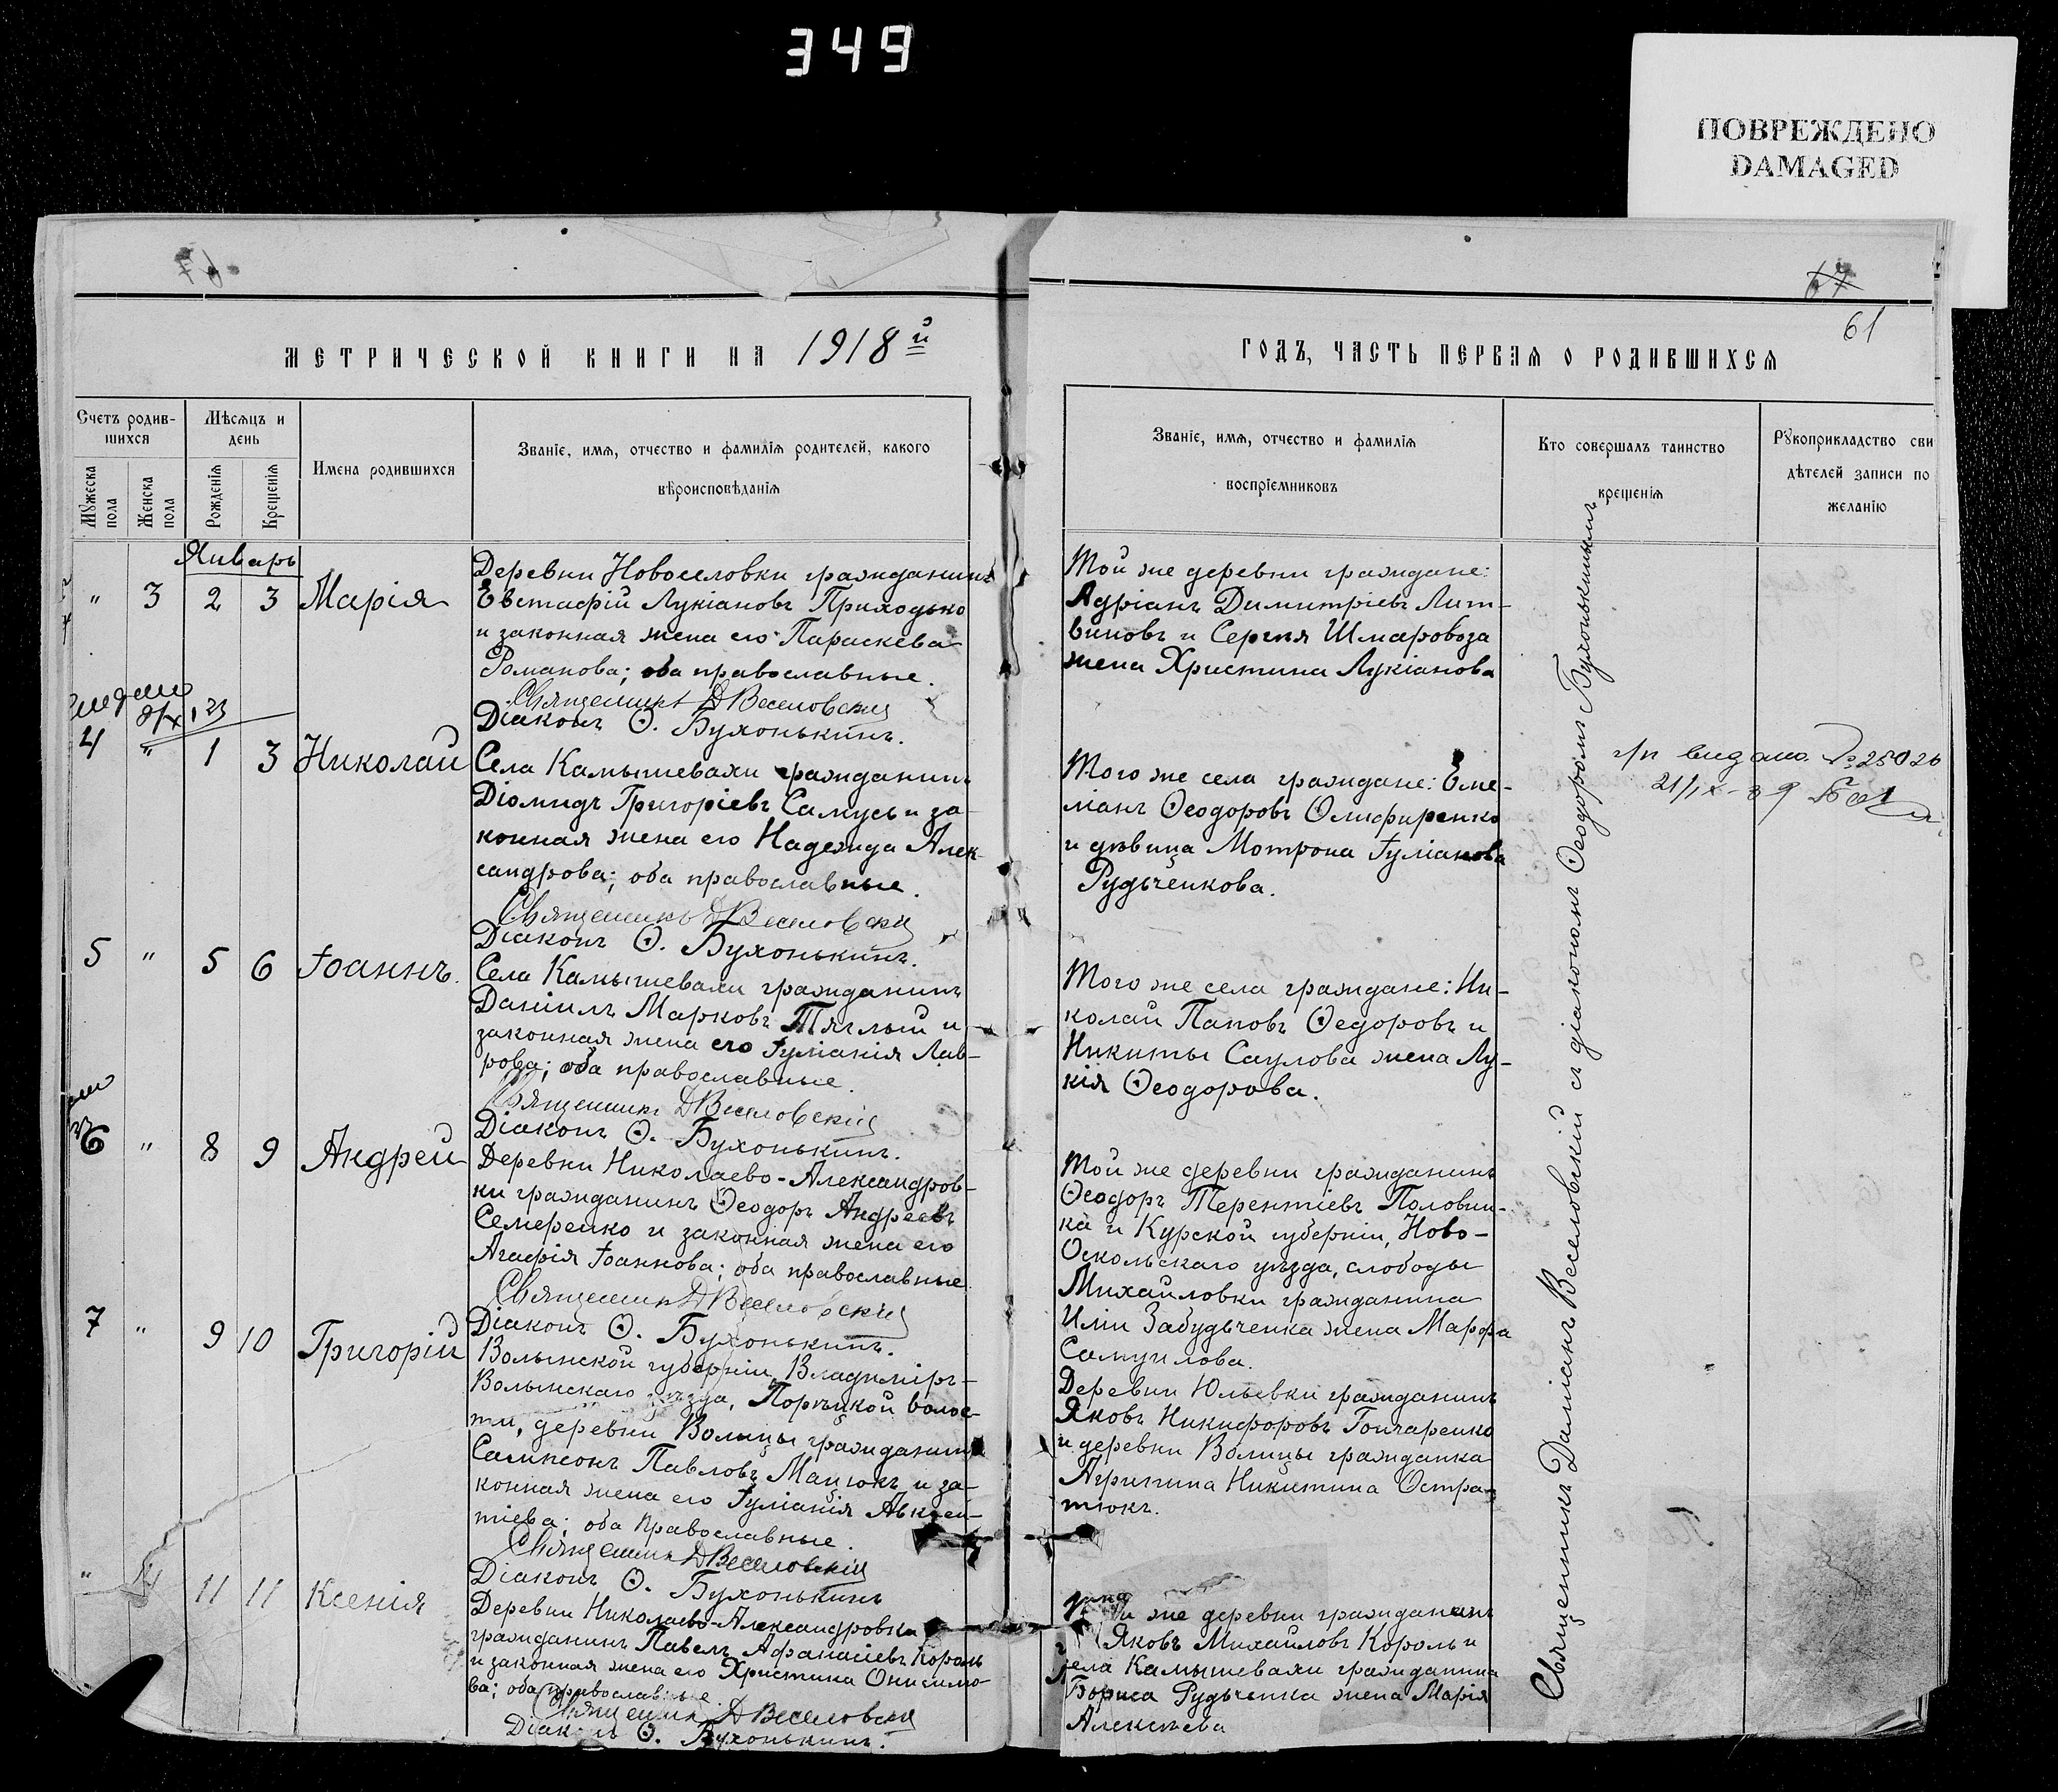 349
ПОВРЕЖДЕНО
DAMAGED
67
61
МЕТРИЧЕСКОЙ КНИГИ НА 1918й
ГОДЪ, ЧАСТЬ ПЕРВАЯ О РОДИВШИХСЯ
Счетъ родив-
шихся
Мѣсяцъ и
день
Имена родившихся
Званіе, имя, отчество и фамилія родителей, какого
вѣроисповѣданія
Мужеска
пола
Женска
пола
Рожденія
Крещенія
Званіе, имя, отчество и фамилія
воспріемниковъ
Кто совершалъ таинство
крещенія
Рукоприкладство сви
дѣтелей записи по
желанію
Январь
" 3 2 3 Марія
Деревни Новоселовки гражданинъ
Евстафій Лукіановъ Приходько
и законная жена его Параскева
Романова; оба православные.
Священникъ Д Веселовскій
Діаконъ Ѳ. Бухонькинъ.
Той же деревни граждане:
Адріанъ Димитріевъ Лит-
виновъ и Сергія Шмаровоза
жена Христина Лукіанова
4 " 1 3 Николай
Села Камышевахи гражданинъ
Діомидъ Григоріевъ Самусь и за-
конная жена его Надежда Алек-
сандрова; оба православные.
Священникъ Д Веселовскій
Діаконъ Ѳ. Бухонькинъ.
Того же села граждане: Еме-
ліанъ Ѳеодоровъ Олифиренко
и дѣвица Мотрона Іуліанова
Рудьченкова.
5 " 5 6 Іоаннъ.
Села Камышевахи гражданинъ
Даніилъ Марковъ Тяглый и
законная жена его Іуліанія Лав-
рова; оба православные.
Священникъ Д Веселовскій
Діаконъ Ѳ. Бухонькинъ.
Того же села граждане: Ни-
колай Паповъ Ѳедоровъ и
Никиты Саулова жена Лу-
кія Ѳеодорова.
6 " 8 9 Андрей
Деревни Николаево-Александров-
ки гражданинъ Ѳеодоръ Андреевъ
Семеренко и законная жена его
Агафія Іоаннова; оба православные
Священникъ Д Веселовскій
Діаконъ Ѳ. Бухонькинъ.
Той же деревни гражданинъ
Ѳеодоръ Терентіевъ Половин-
ка и Курской губерніи, Ново-
Оскольскаго уѣзда, слободы
Михайловки гражданина
Иліи Забудьченка жена Марфа
Самуилова.
7 " 9 10 Григорій
Волынской губерніи, Владиміръ-
Волынскаго уѣзда, Порѣцкой волос-
ти, деревни Волицы гражданинъ
Сампсонъ Павловъ Мацюкъ и за-
конная жена его Іуліанія Авксен-
тіева; оба православные.
Священникъ Д Веселовскій
Діаконъ Ѳ. Бухонькинъ
Деревни Юльевки гражданинъ
Яковъ Никифоровъ Гончаренко
и деревни Волицы гражданка
Агрипина Никитина Остра-
тюкъ.
" 4 11 11 Ксенія
Деревни Николаево-Александровки
гражданинъ Павелъ Афанасіевъ Король
и законная жена его Христина Онисимо-
ва; оба православные.
Священникъ Д Веселовскій
Діаконъ Ѳ. Бухонькинъ.
же деревни гражданинъ
Яковъ Михайловъ Король и
села Камышевахи гражданина
Бориса Рудьченка жена Марія
Алексѣева
Священникъ Даміанъ Веселовскій съ діакономъ Ѳеодоромъ Бухонькинымъ